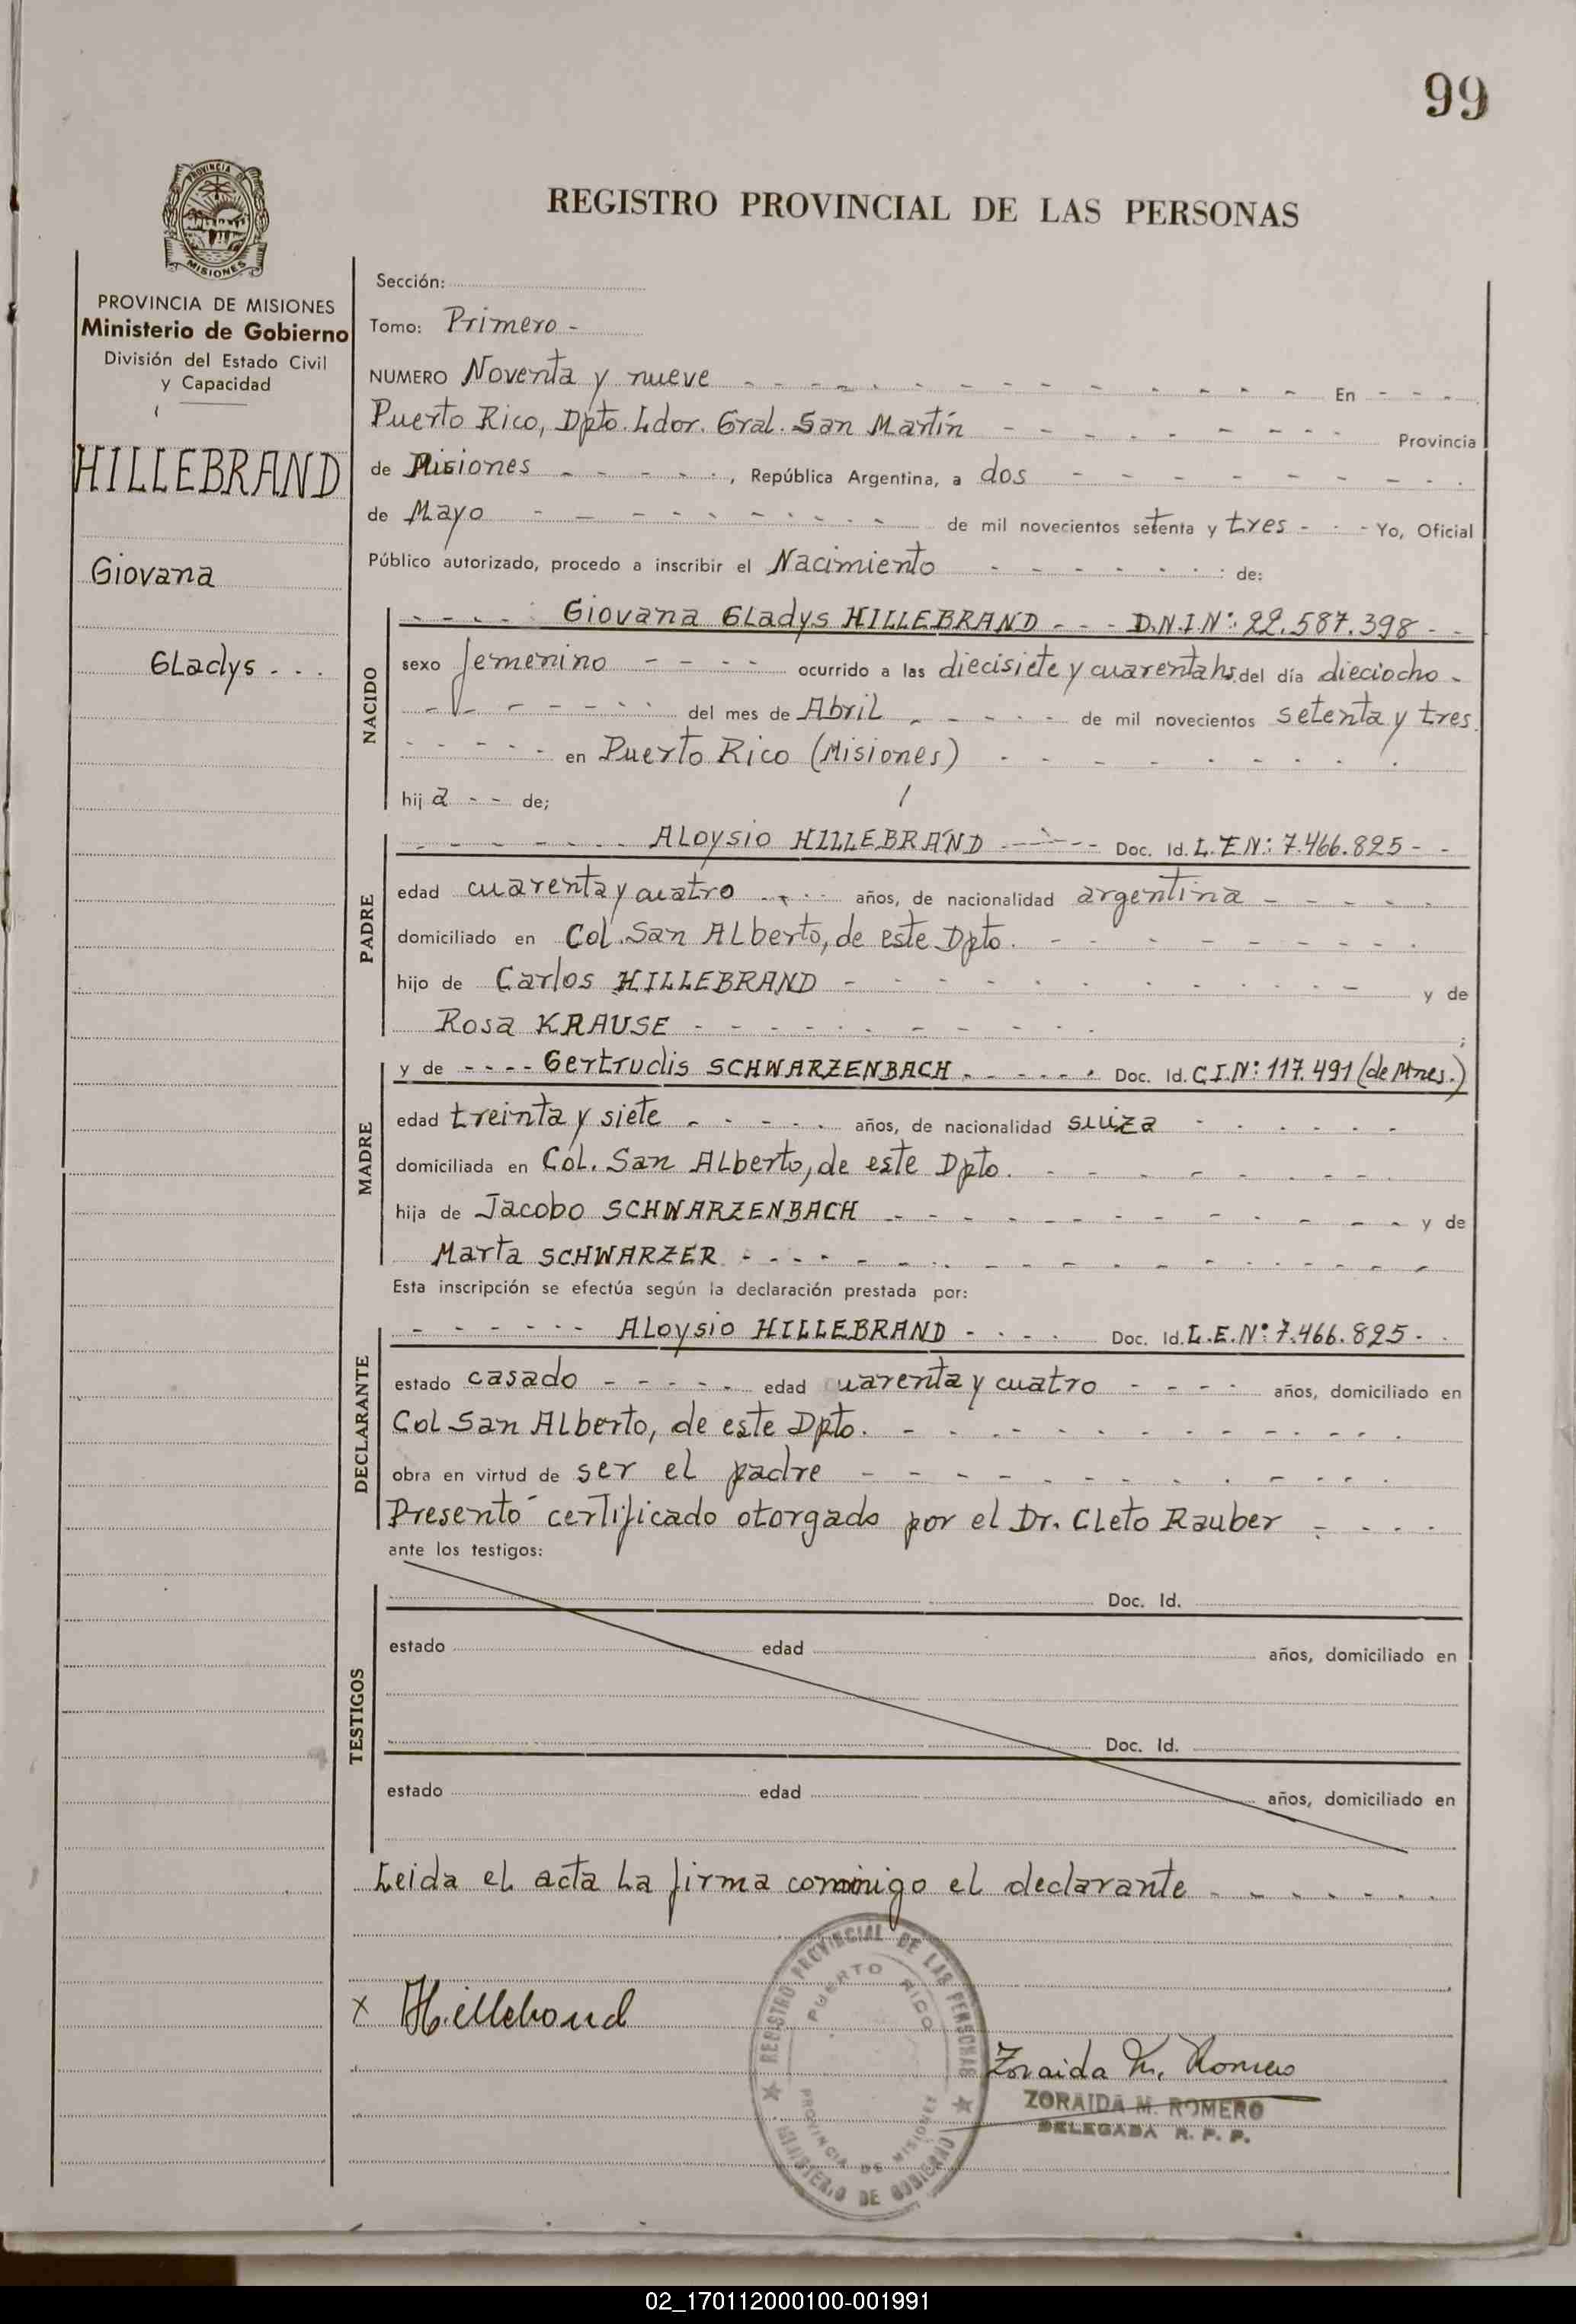 99
REGISTRO PROVINCIAL DE LAS PERSONAS
PROVINCIA DE MISIONES
PROVINCIA DE MISIONES
Ministerio de Gobierno
División del Estado Civil
y Capacidad
HILLEBRAND
Giovana
Gladys - - .
Sección:
Tomo: Primero -
NUMERO Noventa y nueve - - - - - - - - En - - -
Puerto Rico, Dpto. Ldor. Gral. San Martín - - - - - - - - Provincia
de Misiones - - - - - , República Argentina, a dos - - - - - - - -
de Mayo - - - - - - - - de mil novecientos setenta y tres - - - Yo, Oficial
Público autorizado, procedo a inscribir el Nacimiento - - - - - - de:
NACIDO
- - - - Giovana Gladys HILLEBRAND - - - D.N.I Nº: 22.587.398 - -
sexo femenino - - - - ocurrido a las diecisiete y cuarenta hs. del día dieciocho -
- - - - - - del mes de Abril - - - - - de mil novecientos setenta y tres
- - - - - en Puerto Rico (Misiones) - - - - - - - -
hij a - - de;
PADRE
- - - - - - Aloysio HILLEBRAND - - - - - Doc. Id. L.E Nº: 7.466.825 - -
edad cuarenta y cuatro - - - años, de nacionalidad argentina - - - - -
domiciliado en Col. San Alberto, de este Dpto. - - - - - - - -
hijo de Carlos HILLEBRAND - - - - - - - - - - y de
Rosa KRAUSE - - - - - - - - - - ;
MADRE
y de - - - - Gertrudis SCHWARZENBACH - - - - - - Doc. Id. C.I.Nº: 117.491 (de Mnes.)
edad treinta y siete - - - - - años, de nacionalidad suiza - - - - - -
domiciliada en Col. San Alberto, de este Dpto. - - - - - - - -
hija de Jacobo SCHWARZENBACH - - - - - - - - - - y de
Marta SCHWARZER - - - - - - - - - - - - - -
Esta inscripción se efectúa según la declaración prestada por:
DECLARANTE
- - - - - - Aloysio HILLEBRAND - - - - Doc. Id. L.E.Nº: 7.466.825 - -
estado casado - - - - - - edad cuarenta y cuatro - - - - años, domiciliado en
Col San Alberto, de este Dpto. - - - - - - - - - - - -
obra en virtud de ser el padre - - - - - - - - - - - -
Presentó certificado otorgado por el Dr. Cleto Rauber - - - -
ante los testigos:
TESTIGOS
Doc. Id.
estado edad años, domiciliado en
Doc. Id.
estado edad años, domiciliado en
Leida el acta la firma conmigo el declarante - - - - - -
x Hillebrand
REGISTRO PROVINCIAL DE LAS PERSONAS
PUERTO RICO
PROVINCIA DE MISIONES
MINISTERIO DE GOBIERNO
Zoraida M. Romero
ZORAIDA M. ROMERO
DELEGADA R. P. P.
02_170112000100-001991